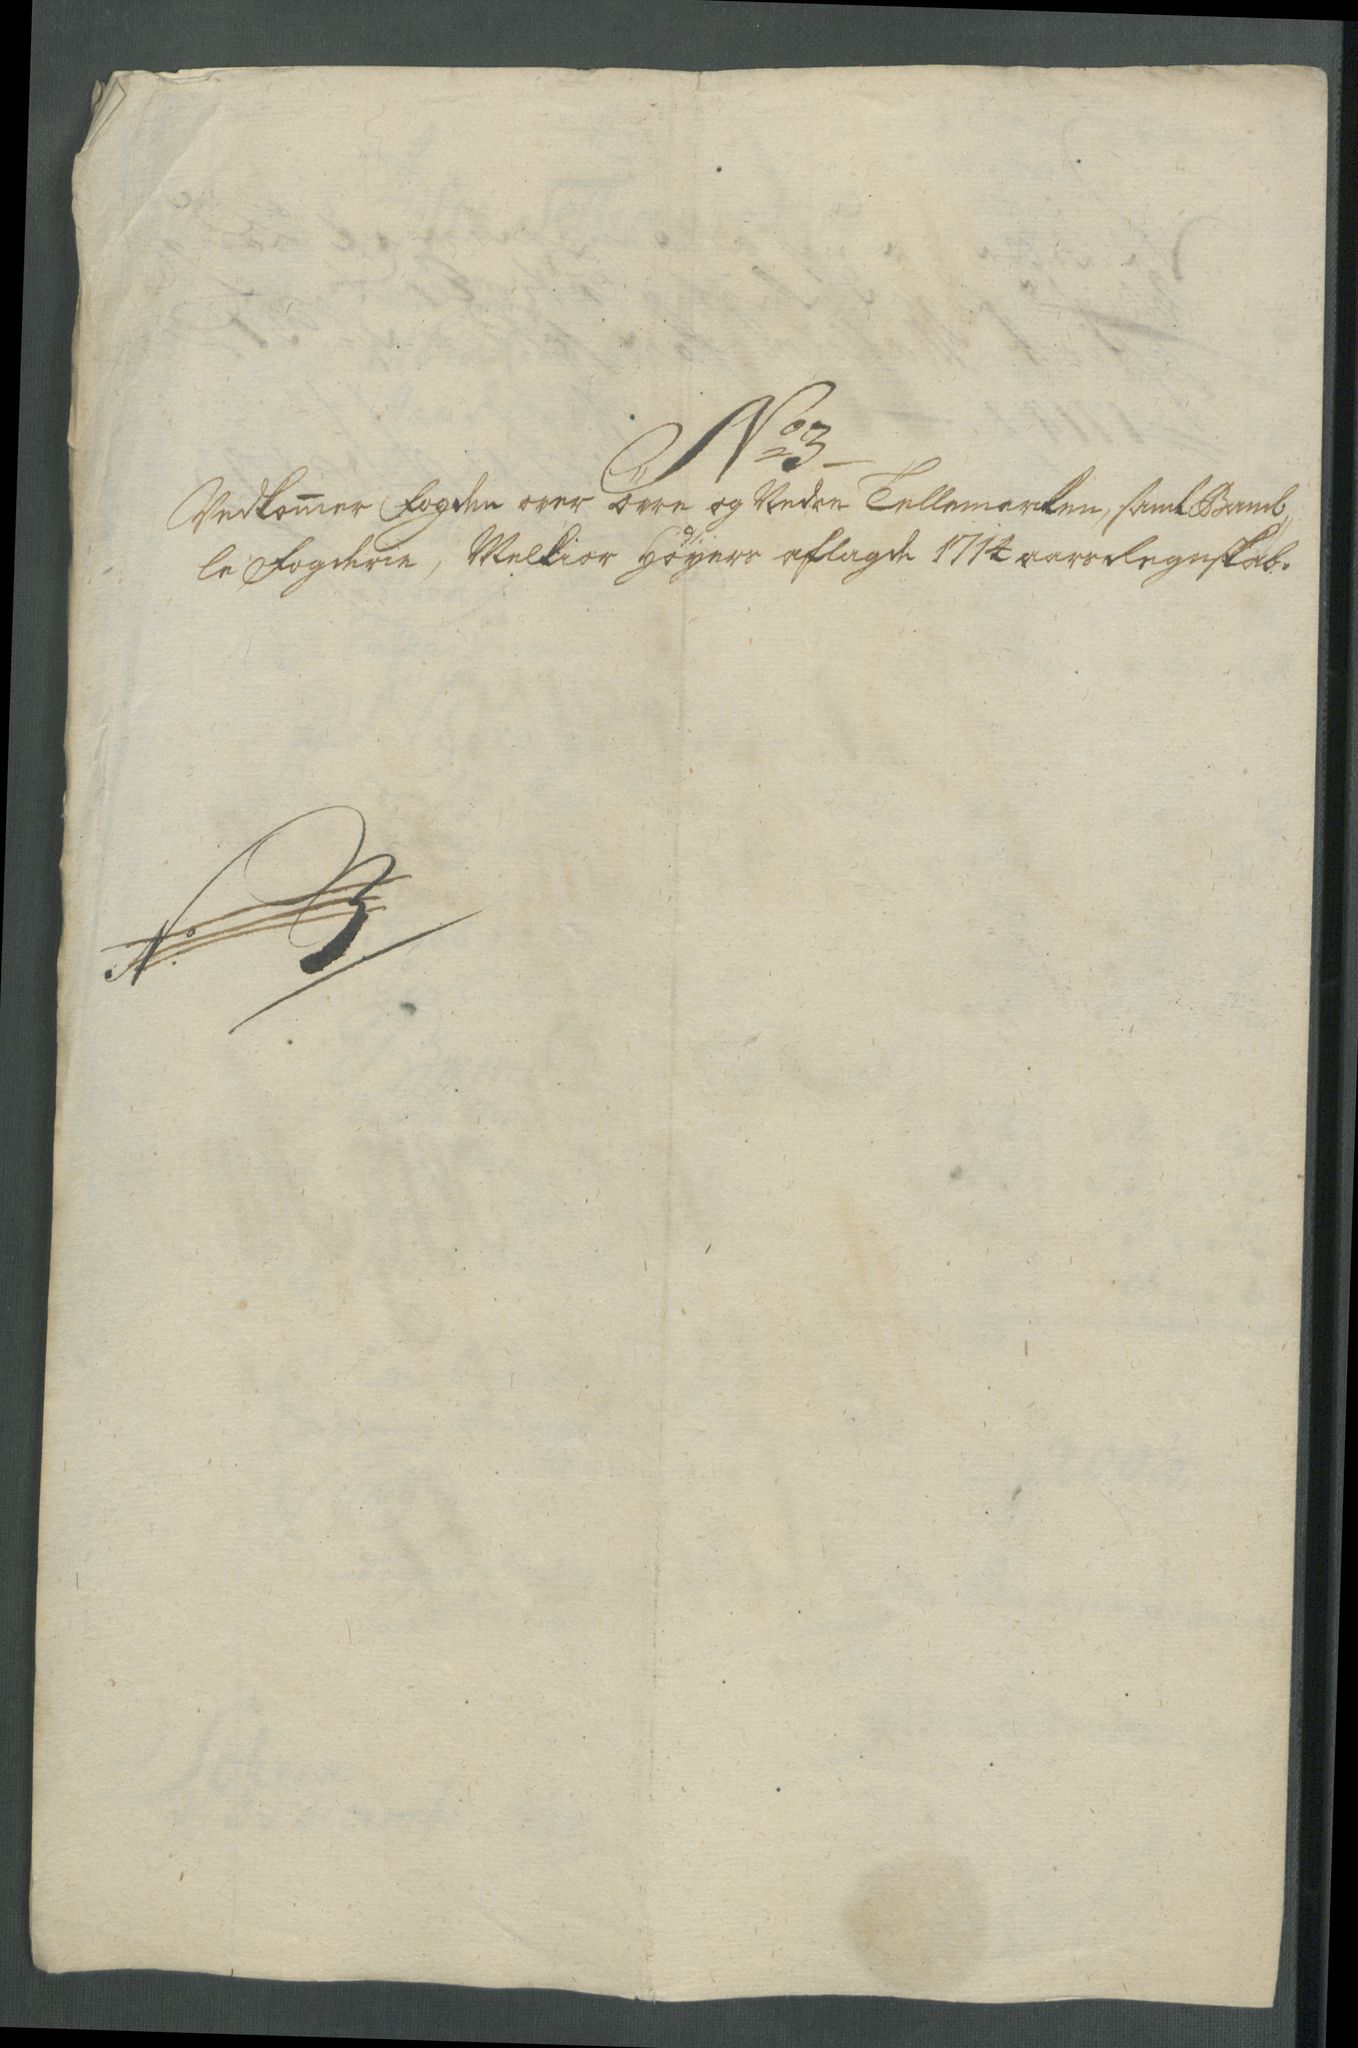 No 3
Vedkom̄er Fogden over övre og Nedre Tellemarken, samt Bamb„
le Fogderie, Melkior Höyers aflagde 1714 aars Regnskab.
No. 3